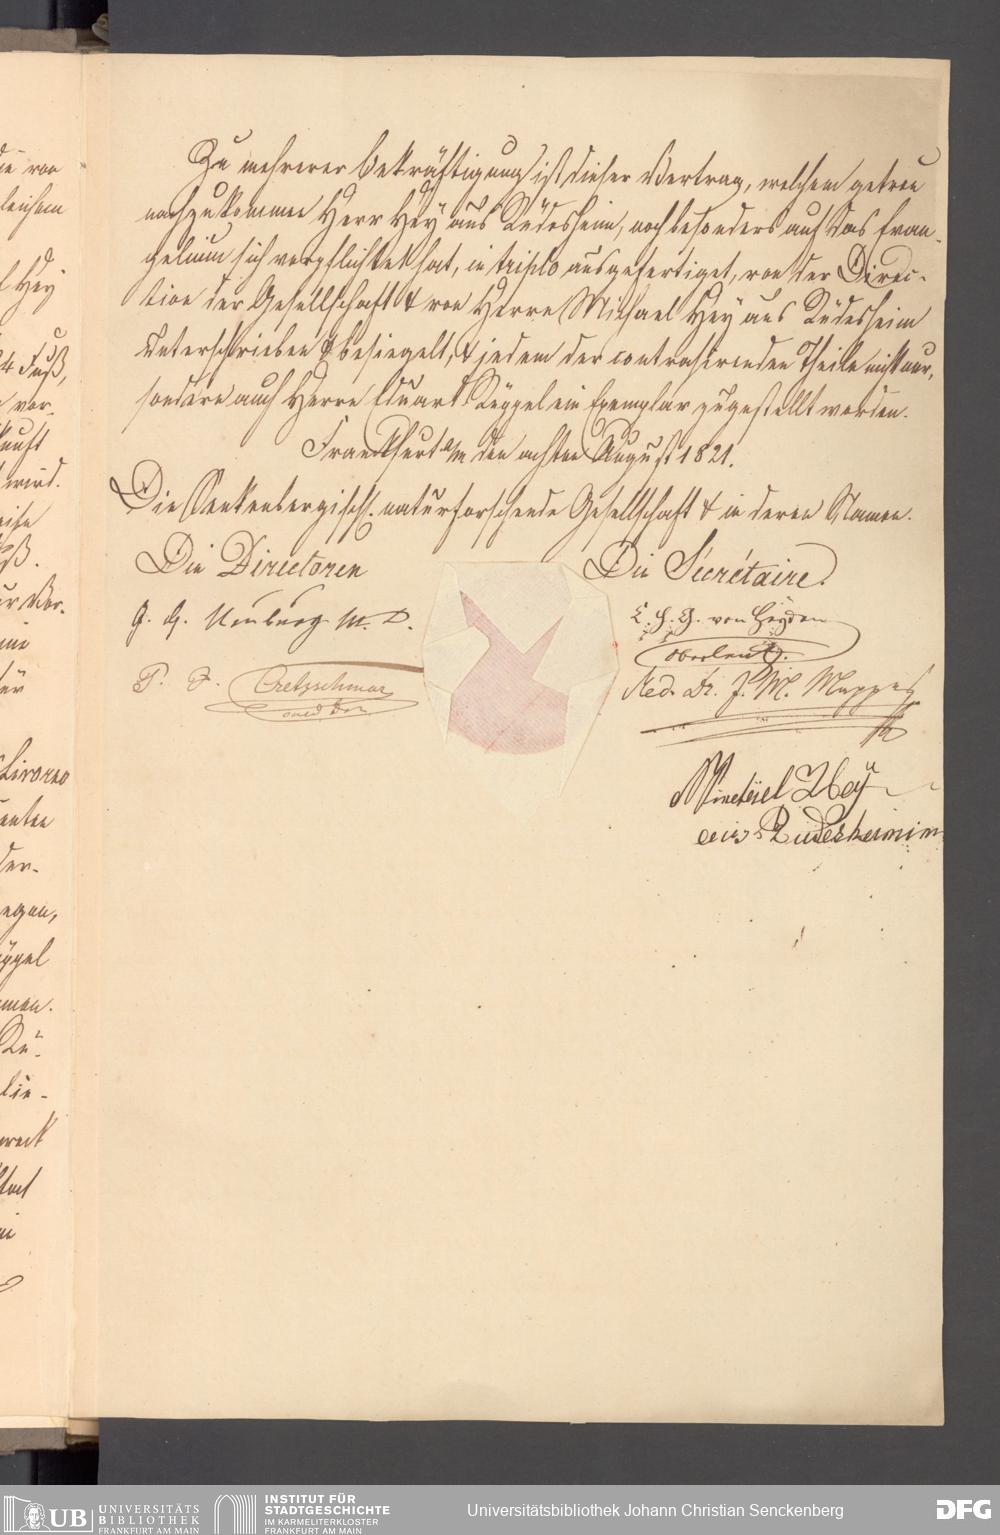 Zu mehrerer Bekräftigung ist dieser Vertrag, welchem getreu
nachzukommen Herr Hey aus Rüdesheim, noch besonders auf das Evan-
gelium sich verpflichtet hat, in triplo ausgefertiget, von der Direc-
tion der Gesellschaft & von Herrn Michael Hey aus Rüdesheim
unterschrieben & besiegelt, & jedem der contrahirenden Theile nicht nur,
sondern auch Herrn Eduard Rüppel ein Exemplar zugestellt worden.
Frankfurt a/m den achten August 1821.
Die Senkenbergisch. naturforschende Gesellschaft & in deren Namen.
Die Directoren
G. H. Neuburg M. D.
P. J. Cretzschmar
med Dor
Die Secrétaire
C. H. G. von Heyden
Oberleut.
Med. Dr. J. M. Mappes
Michael Hey
aus Rudesheim
ie von
gleichem
l Hey
4 Fuß,
ver-
kunft
wird.
eise
ß.
er Vor-
ür
Livorno
enten
der-
egen,
üppel
men.
Rü-
lie-
weck
UB
UNIVERSITÄTS
BIBLIOTHEK
FRANKFURT AM MAIN
INSTITUT FÜR
STADTGESCHICHTE
IM KARMELITERKLOSTER
FRANKFURT AM MAIN
Universitätsbibliothek Johann Christian Senckenberg
DFG